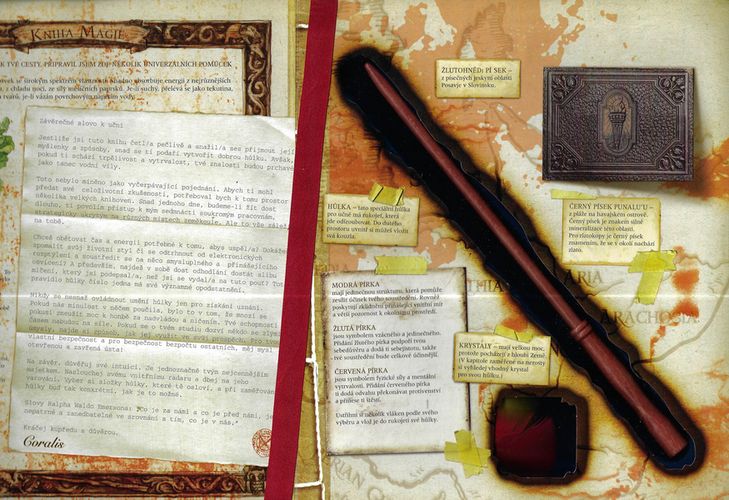 KNIHA MAGIE
K TVÉ CESTY, PŘIPRAVIL JSEM ZDE NĚKOLIK UNIVERZÁLNÍCH POMŮCEK
Závěrečné slovo k učni
Jestliže jsi tuto knihu četl/a pečlivě a snažil/a ses přijmout její
myšlenky a způsoby, snad se ti podaří vytvořit dobrou hůlku. Avšak,
pokud ti schází trpělivost a vytrvalost, tvé znalosti budou prchavé
jako tanec vodní víly.
Toto nebylo míněno jako vyčerpávající pojednání. Abych ti mohl
předat své celoživotní zkušenosti, potřeboval bych k tomu prostor
několika velkých knihoven. Snad jednoho dne, budeme-li žít dost
dlouho, ti povolím přístup k mým sedmnácti soukromým pracovnám,
strategicky ukrytým na různých místech zeměkoule. Ale to vše záleží
na tobě.
Chceš obětovat čas a energii potřebné k tomu, aby uspěl/a? Dokážeš
zpomalit svůj životní styl či se odtrhnout od elektronických
rozptýlení a soustředit se na něco smysluplného a přinášejícího
osvícení? A především, najdeš v sobě dost odhodlání dostát slibu
mlčení, který jsi podepsal/a, než jsi se vydal/a na tuto pouť? Toto
pravidlo hůlky číslo jedna má své významné opodstatnění.
Nikdy se nesmáš ovládnout umění hůlky jen pro získání uznání.
Pokud nás minulost v něčem poučila, bylo to v tom, že mnozí se
pokusí zneužít moc k honbě za nadvládou a ničením. Tvé schopnosti
časem nebudou na zdatné síle. Pokud se o tvém studiu dozví někdo se zlými
úmysly, najde si prosím, jak jej využít ve svůj prospěch. Pro tvou
vlastní bezpečnost a pro bezpečnost bezpočtu ostatních, měj mysl
otevřenou a zavřená ústa!
Na závěr, důvěřuj své intuici. Je jednoznačně tvým nejcennějším
majetkem. Naslouchej svému vnitřnímu radaru a dbej na jeho
varování. Vyber si složky hůlky, které tě osloví, a při zaměřování
hůlky buď tak konkrétní, jak je to možné.
Slovy Ralpha Walda Emersona: "Co je za námi a co je před námi, je
nepatrné a zanedbatelné ve srovnání s tím, co je v nás."
Kráčej kupředu s důvěrou.
Coralis
ŽLUTOHNĚDÝ PÍSEK –
z písečných jeskyní oblasti
Posavje v Slovinsku.
HŮLKA – tato speciální hůlka
pro učně má rukojeť, která
jde odšroubovat. Do dutého
prostoru uvnitř si můžeš vložit
svá kouzla.
ČERNÝ PÍSEK PUNALU'U –
z pláže na havajském ostrově.
Černý písek je znakem silné
mineralizace této oblasti.
Pro různotepy je černý písek
znamením, že se v okolí nachází
zlato.
MODRÁ PÍRKA
mají jedinečnou strukturu, která pomůže
zesílit účinek tvého soustředění. Rovněž
poskytují zklidnění přinášející vnitřní mír
a větší pozornost k okolnímu prostředí.
ŽLUTÁ PÍRKA
jsou symbolem vzácného a jedinečného.
Přidání žlutého pírka podpoří tvou
sebedůvěru a dodá ti sebejistotu, takže
tvé soustředění bude celkově účinnější.
ČERVENÁ PÍRKA
jsou symbolem fyzické síly a mentální
vytrvalosti. Přidání červeného pírka
ti dodá odvahu překonávat protivenství
a přinese ti štěstí.
Ustřihni si několik vláken podle svého
výběru a vlož je do rukojeti své hůlky.
KRYSTALY – mají velkou moc,
protože pocházejí z hloubi Země.
(V kapitole zaměřené na nerosty
si vyhledej vhodný krystal
pro svou hůlku.)
ARIA
ARACHOSIA